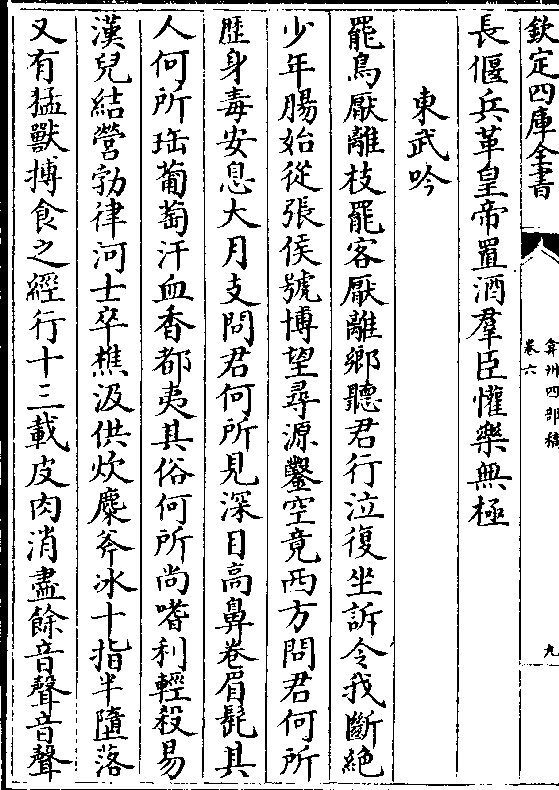 欽定四庫全書
弇州四部稿
卷六
九
長偃兵革皇帝置酒羣臣懽樂無極
東武吟
罷鳥厭離枝罷客厭離鄉聽君行泣復坐訴令我斷絶
少年腸始從張侯號博望尋源鑿空竟西方問君何所
歴身毒安息大月支問君何所見深目高鼻卷眉髭其
人何所珤葡萄汗血香都夷其俗何所尚嗜利輕殺易
漢兒結營勃律河士卒樵汲供炊糜斧冰十指半墮落
又有猛獸搏食之經行十三載皮肉消盡餘音聲音聲